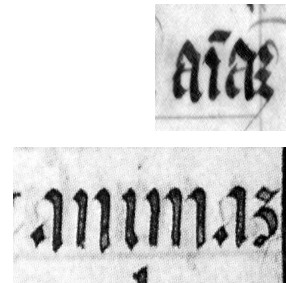 aīas
animas